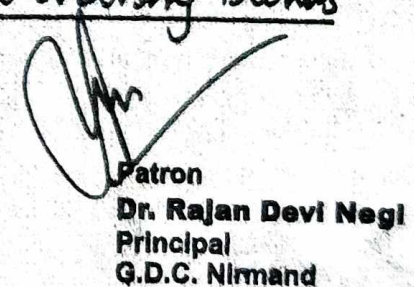 Patron
Dr. Rajan Devi Negi
Principal
G.D.C. Nirmand